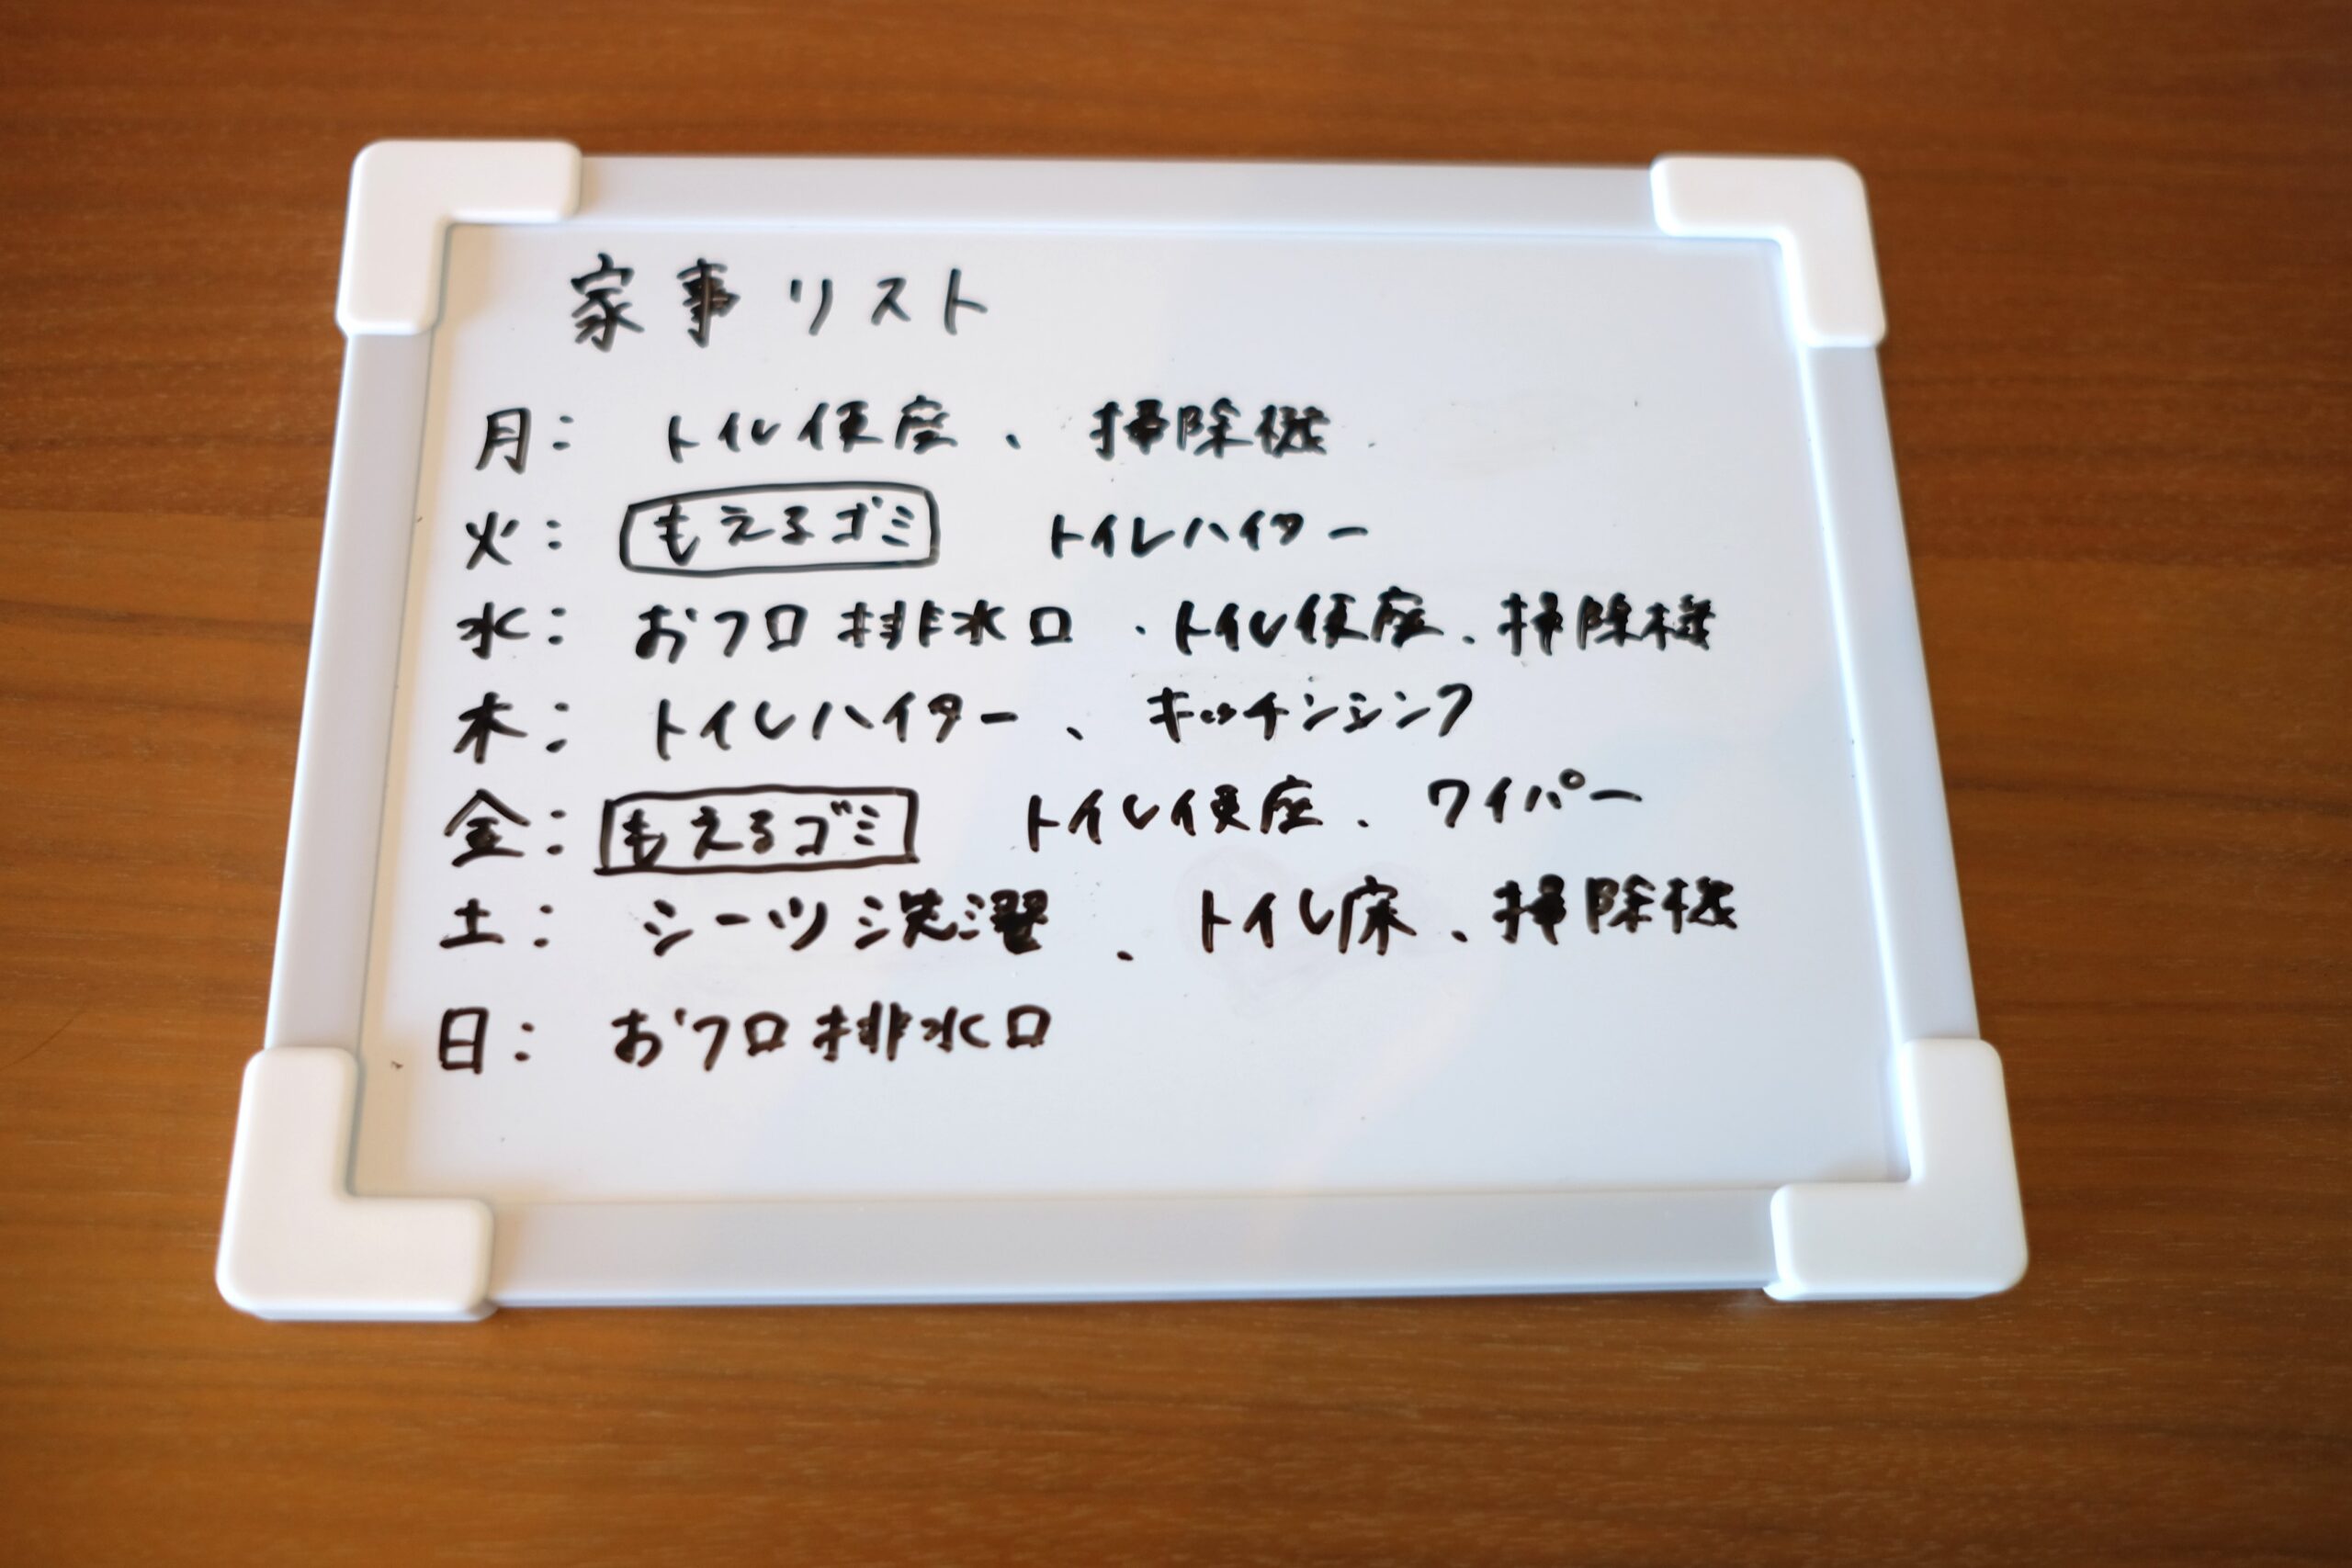 家事リスト
月： トイレ便座、掃除機
火： もえるゴミ トイレハイター
水： おフロ排水口、トイレ便座、掃除機
木： トイレハイター、キッチンシンク
金： もえるゴミ トイレ便座、ワイパー
土： シーツ洗濯、トイレ床、掃除機
日： おフロ排水口